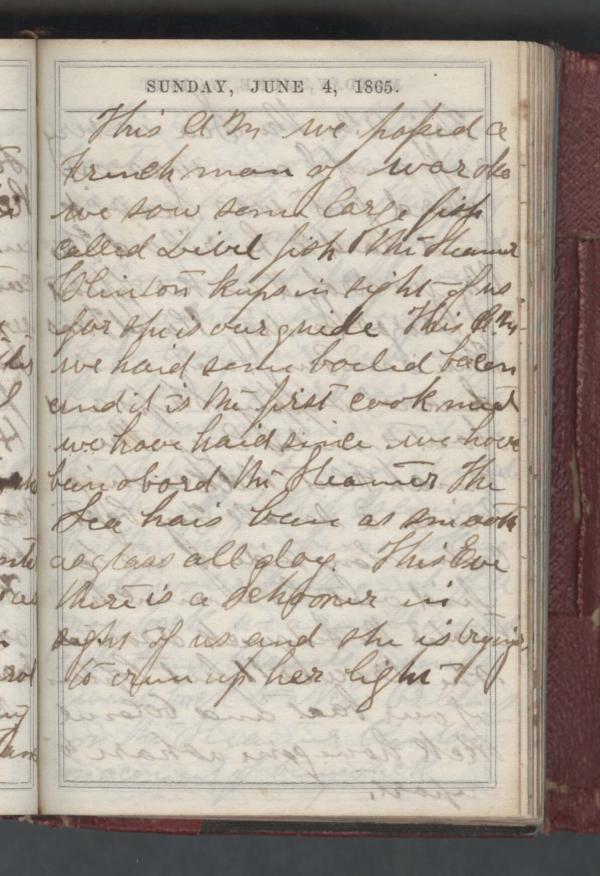 SUNDAY, JUNE 4, 1865.
This A M we passed a
French man of war also
we sow some large fish
called Divel fish The Steamer
Clinton keeps in sight of us
for she is our guide This A.M
we haid some boiled bacon
and it is the first cook meat
we have haid since we have
bein abord the Steamer The
Sea hais been as smooth
as glass all day. This Eve
there is a Schooner in
sight of us and she is trying
to run up her light